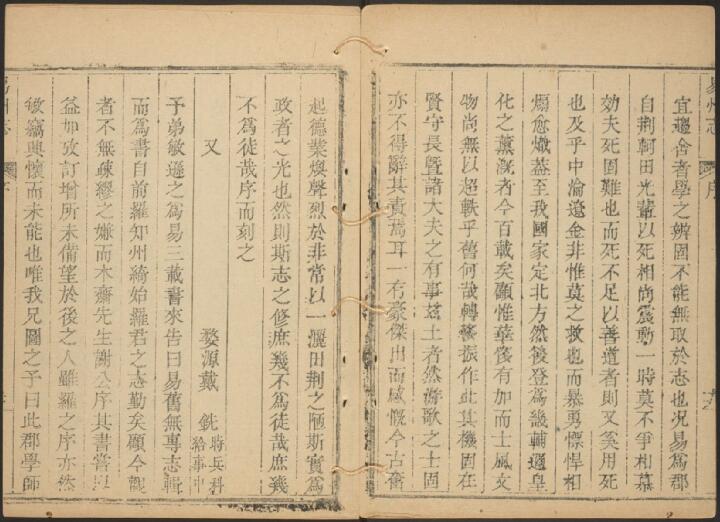 宜邇金者學之辨固不能無取於志也况易爲郡
自荆軻田光輩以死相尚震動一時莫不爭相慕
効夫死固難也而死不足以善道者則又奚用死
也及乎中淪遼金非惟莫之救也而暴勇慓悍相
煽愈熾葢至我國家定北方然後登爲畿輔邇皇
化之薰漑者今百載矣顧惟華筱有加而士風文
物尚無以超軼乎舊何哉轉發振作此其機固在
賢守長曁諸大夫之有事兹土者然游歌之士固
亦不得辭其責焉耳一有豪傑出而感慨今古奮
起德業煥聲烈於非常以一灑田荆之陋斯實爲
政者之光也然則斯志之修庶幾不爲徒哉庶幾
不爲徒哉序而刻之
又
婺源戴 銑 將兵科給事中
予弟敏遜之爲易三載書來告曰易舊無專志輯
而爲書自前羅知州綺始羅君之志勤矣顧今觀
者不無疎繆之嫌而木齋先生謝公序其書嘗
益加攷訂增所未備望於後之人雖羅之序亦然
敏竊興懷而未能也唯我兄圖之予曰此郡學師
易州志 序